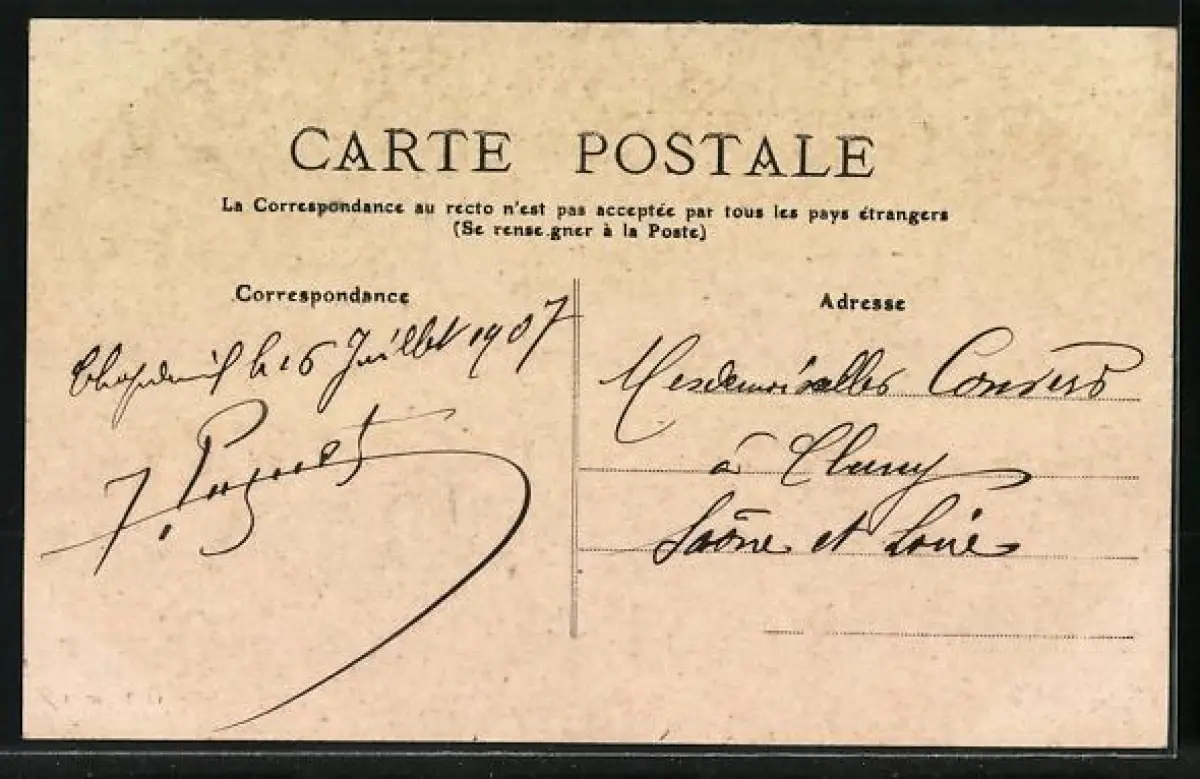 CARTE POSTALE
La Correspondance au recto n'est pas acceptée par tous les pays étrangers
(Se rense.gner à la Poste)
Correspondance
le 16 Juillet 1907
Adresse
Mesdemoiselles Convers
à Cluny
Saône et Loire